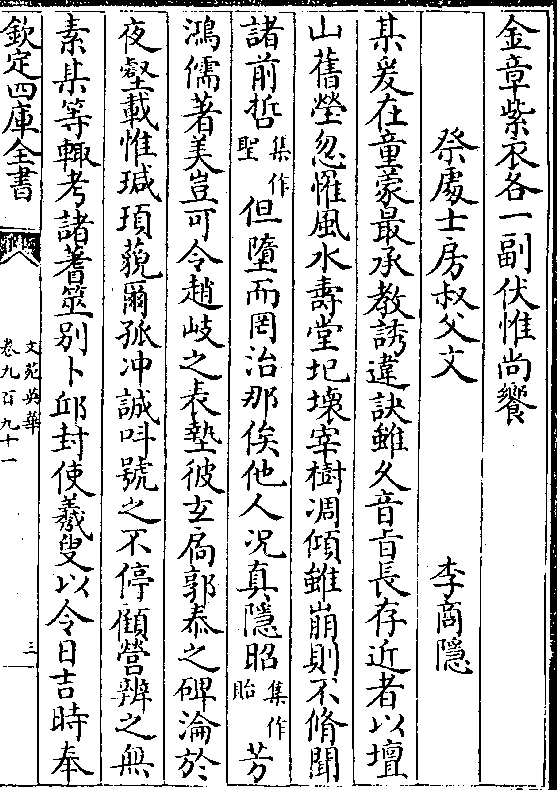 金章紫衣各一副伏惟尚饗
祭處士房叔父文　李商隱
某爰在童蒙最承教誘違訣雖久音旨長存近者以壇
山舊塋忽罹風水壽堂圮壞宰樹凋傾雖崩則不脩聞
諸前哲集作聖但墮而罔治那俟他人况真隱昭集作貽芳
鴻儒著美豈可令趙岐之表墊彼玄扃郭泰之碑淪於
夜壑載惟瑊頊藐爾孤冲誠叫號之不停顧營辦之無
素某等輙考諸蓍筮别卜邱封使羲叟以令日吉時奉
欽定四庫全書
文苑英華
卷九百九十一
三